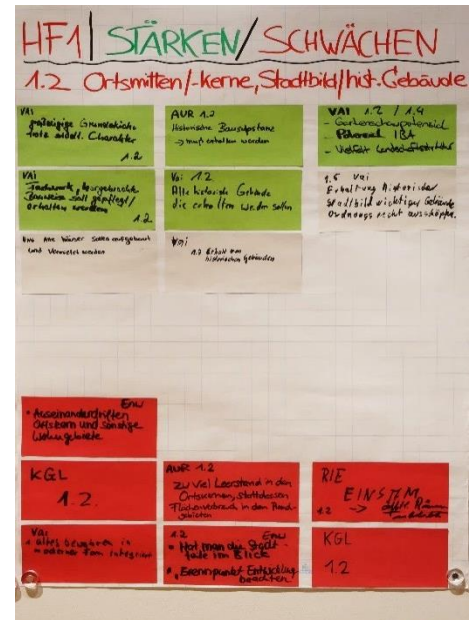 HF1 | STÄRKEN / SCHWÄCHEN
1.2 Ortsmitten/-kerne, Stadtbild/hist. Gebäude
VAI
großzügige
trotz städt. Charakter
1.2
AUR 1.2
Historische Bausubstanz
→ muß erhalten werden
VAI 1.2 / 1.4
- Gartenschaupotenzial
- Potenzial IBA
- Vielfalt
VAI
Fachwerk,
Bauweise soll gepflegt/
erhalten werden
1.2
Vai 1.2
Alte historische Gebäude
die erhalten werden sollen
1.5 Vai
Erhaltung historischer
Stadtbild wichtiger Gebäude
Ordnungsrecht ausschöpfen
Alte Häuser sollen
und vernetzt werden
Vai
1.2 Erhalt von
historischen Gebäuden
Enw
• Auseinanderdriften
Ortskern und sonstige
Wohngebiete
KGL
1.2.
AUR 1.2
zu viel Leerstand in den
Ortskernen, stattdessen
Flächenverbrauch in den Rand-
gebieten
RIE
1.2 →
VAI
• altes bewahren in
moderner Form integriert
1.2 Enw
• Hat man die Stadt-
teile im Blick
• „Brennpunkt Entwicklung
beachten"
KGL
1.2